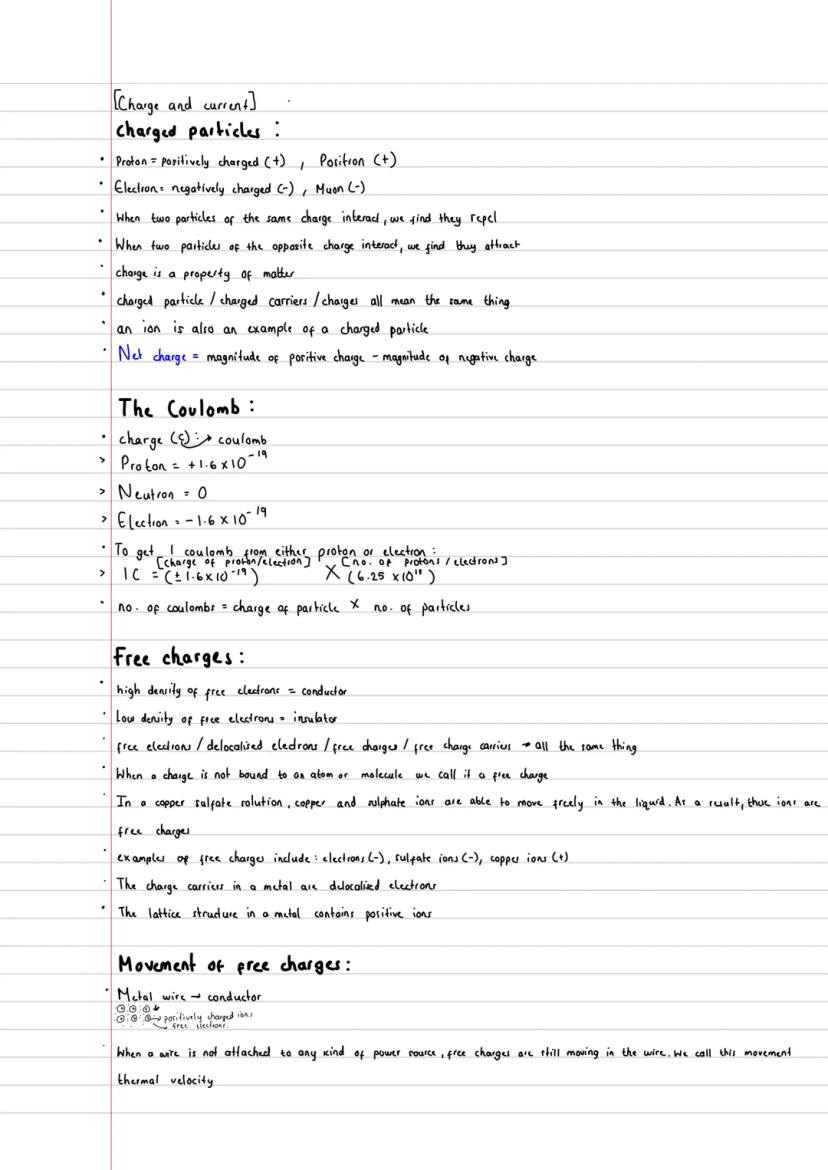 [Charge and current]
Charged particles :
• Proton = positively charged (+) , Positron (+)
• Electron = negatively charged (-) , Muon (-)
• When two particles of the same charge interact, we find they repel
• When two particles of the opposite charge interact, we find they attract
• charge is a property of matter
• charged particle / charged carriers / charges all mean the same thing
• an ion is also an example of a charged particle
• Net charge = magnitude of positive charge - magnitude of negative charge
The Coulomb :
• charge (C) : → coulomb
> Proton = +1.6 x 10^-19
> Neutron = 0
> Electron = -1.6 x 10^-19
• To get 1 coulomb from either proton or electron :
[charge of proton/election] [no. of protons / electrons]
> 1C = (± 1.6 x 10^-19) X (6.25 x 10^18)
• no. of coulombs = charge of particle X no. of particles
Free charges :
• high density of free electrons = conductor
• Low density of free electrons = insulator
• free electrons / delocalised electrons / free charges / free charge carriers → all the same thing
• When a charge is not bound to an atom or molecule we call it a free charge
• In a copper sulfate solution, copper and sulphate ions are able to move freely in the liquid. As a result, these ions are
free charges
• examples of free charges include : electrons (-), sulfate ions (-), copper ions (+)
• The charge carriers in a metal are delocalized electrons
• The lattice structure in a metal contains positive ions
Movement of free charges :
• Metal wire → conductor
→ positively charged ions
→ free elections.
• When a wire is not attached to any kind of power source, free charges are still moving in the wire. We call this movement
thermal velocity